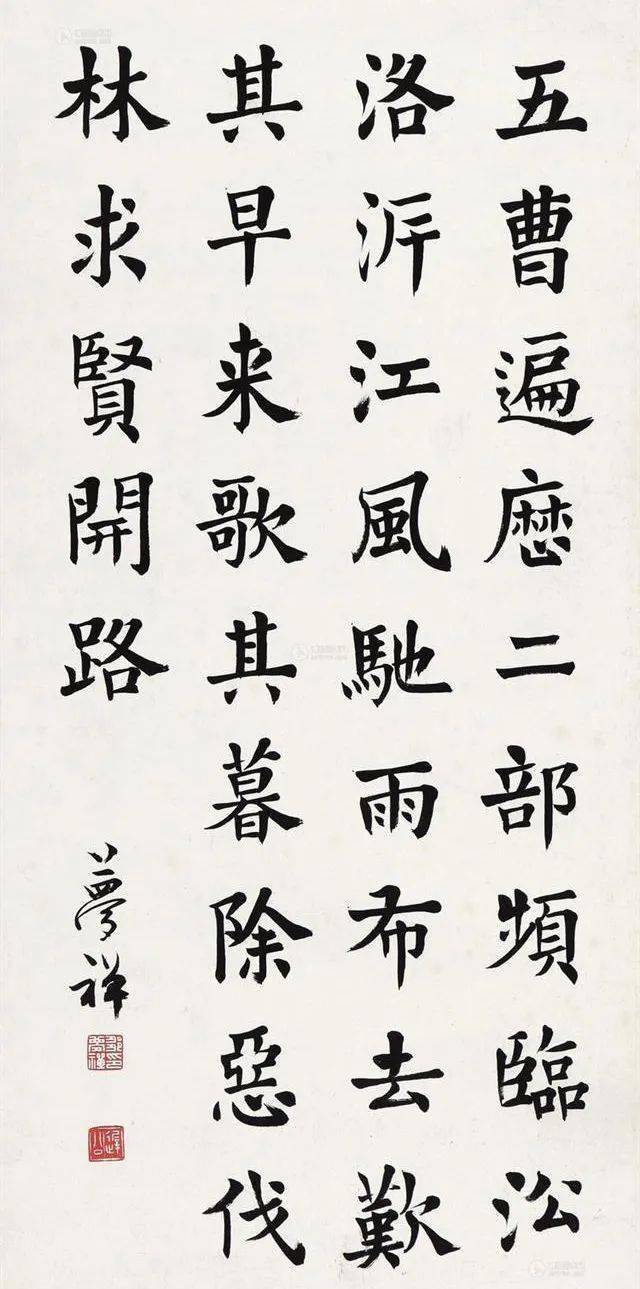 五曹遍歷二部頻臨㳂
洛泝江風馳雨布去歎
其早来歌其暮除惡伐
林求賢開路
夢禅